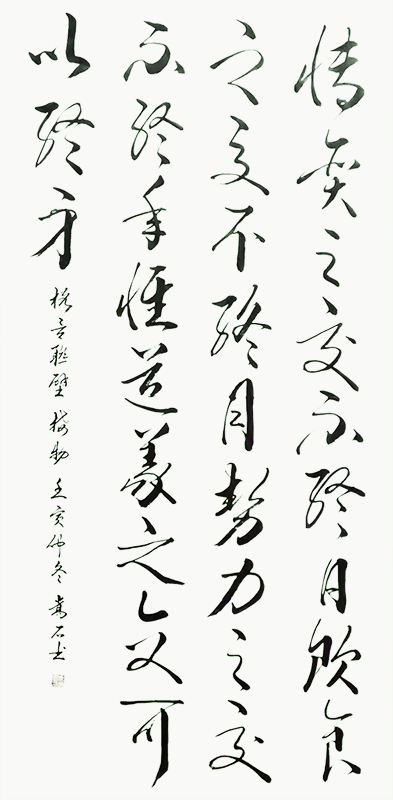 博奕之交不終日飲食
之交不終月勢力之交
不終年惟道義之交可
以終身
格言聯璧 接物 壬寅仲冬 石书